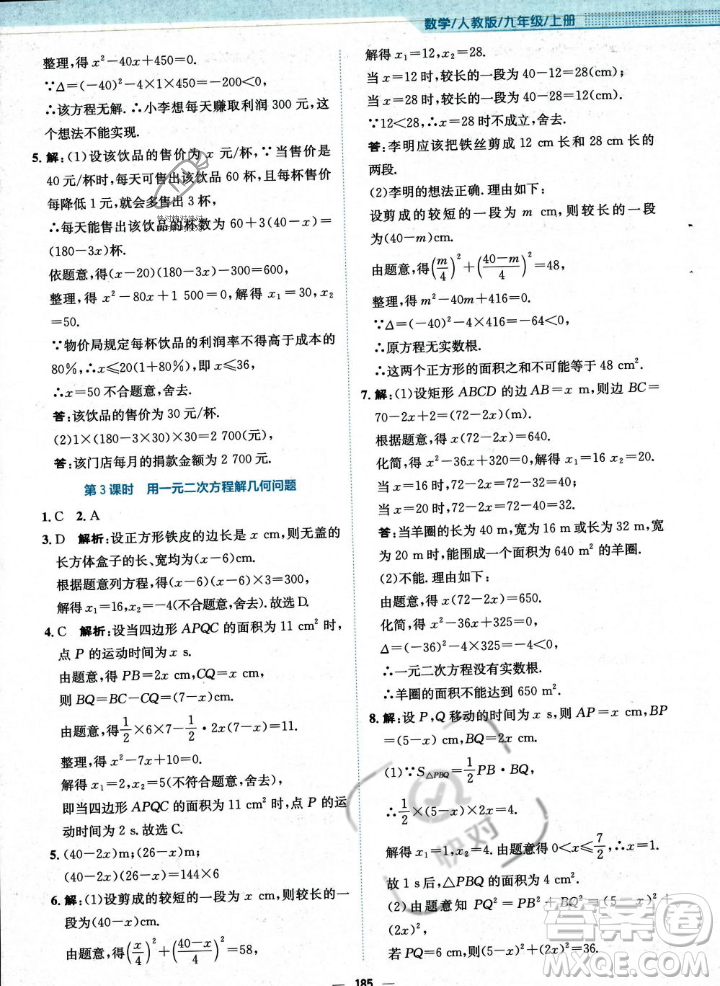 数学/人教版/九年级/上册
整理,得 x²-40x+450=0.
∵Δ=(-40)²-4×1×450=-200<0,
∴该方程无解.∴小李想每天赚取利润 300 元,这
个想法不能实现.
5. 解:(1)设该饮品的售价为 x 元/杯.∵当售价为
40 元/杯时,每天可售出该饮品 60 杯,且售价
每降低 1 元,就会多售出 3 杯,
∴每天能售出该饮品的杯数为 60+3(40-x)=
(180-3x)杯.
依题意,得(x-20)(180-3x)=600,
整理,得 x²-80x+1 500=0,解得 x₁=30,x₂
=50.
∵物价局规定每杯饮品的利润率不允许超过
80%,∴x≤20(1+80%),即 x≤36,
∴x=50 不合题意,舍去.
答:该饮品的售价为 30 元/杯.
(2)1×(180-3×30)×30=2 700(元).
答:该门店每月的捐款金额为 2 700 元.
第 3 课时 用一元二次方程解几何问题
1. C 2. A
3. D 解析:设正方形铁皮的边长是 x cm,则无盖的
长方体盒子的长、宽均为(x-6)cm.
根据题意列方程,得(x-6)(x-6)×3=300,
解得 x₁=16,x₂=-4(不合题意,舍去).故选 D.
4. C 解析:设当四边形 APQC 的面积为 11 cm² 时,
点 P 的运动时间为 x s.
由题意,得 PB=(6-x)cm,BQ=2x cm,
则 S△PBQ=1/2 PB·BQ=1/2×(6-x)×2x
由题意,得 1/2×6×7-1/2·2x(6-x)=11.
整理,得 x²-7x+10=0.
解得 x₁=2,x₂=5(不符合题意,舍去),
即当四边形 APQC 的面积为 11 cm² 时,点 P 的运
动时间为 2 s.故选 C.
5. (40-2x)m;(26-x)m;
(40-2x)(26-x)=144×6
6. 解:(1)设剪成的较短的一段为 x cm,则较长的一
段为(40-x)cm.
由题意,得(x/4)²+((40-x)/4)²=58,
解得 x₁=12,x₂=28.
当 x=12 时,较长的一段为 40-12=28(cm),
当 x=28 时,较长的一段为 40-28=12(cm).
∵12<28,∴x=28 时不成立,舍去.
答:李明应该把铁丝剪成 12 cm 和 28 cm 长的
两段.
(2)李明的想法正确.理由如下:
设剪成的较短的一段为 m cm,则较长的一段
为(40-m)cm.
由题意,得(m/4)²+((40-m)/4)²=48,
整理,得 m²-40m+416=0.
∵Δ=(-40)²-4×416=-64<0,
∴原方程无实数根.
∴这两个正方形的面积之和不可能等于 48 cm².
7. 解:(1)设矩形 ABCD 的边 AB=x m,则边 BC=
70-2x+2=(72-2x)(m).
根据题意,得 x(72-2x)=640.
化简,得 x²-36x+320=0.
解得 x₁=16,x₂=20.
当 x=16 时,72-2x=72-32=40;
当 x=20 时,72-2x=72-40=32.
答:当羊圈的长为 40 m,宽为 16 m 或长为 32 m,
宽为 20 m 时,能围成一个面积为 640 m² 的羊圈.
(2)不能.理由如下:
由题意,得 x(72-2x)=650.
化简,得 x²-36x+325=0.
Δ=(-36)²-4×325=-4<0.
∴一元二次方程没有实数根.
∴羊圈的面积不能达到 650 m².
8. 解:设 P,Q 移动的时间为 x s,则 AP=x cm,BP
=(5-x)cm,BQ=2x cm.
(1)∵S△PBQ=1/2 PB·BQ,
∴1/2×(5-x)×2x=4.
解得 x₁=1,x₂=4.由题意得 0≤x≤7/2,∴x=1.
故 1 s 后,△PBQ 的面积为 4 cm².
(2)由题意,得 PQ²=PB²+BQ²=(5-x)²+
(2x)²,
若 PQ=6 cm,则(5-x)²+(2x)²=36.
185
答案圈
MXQE.COM